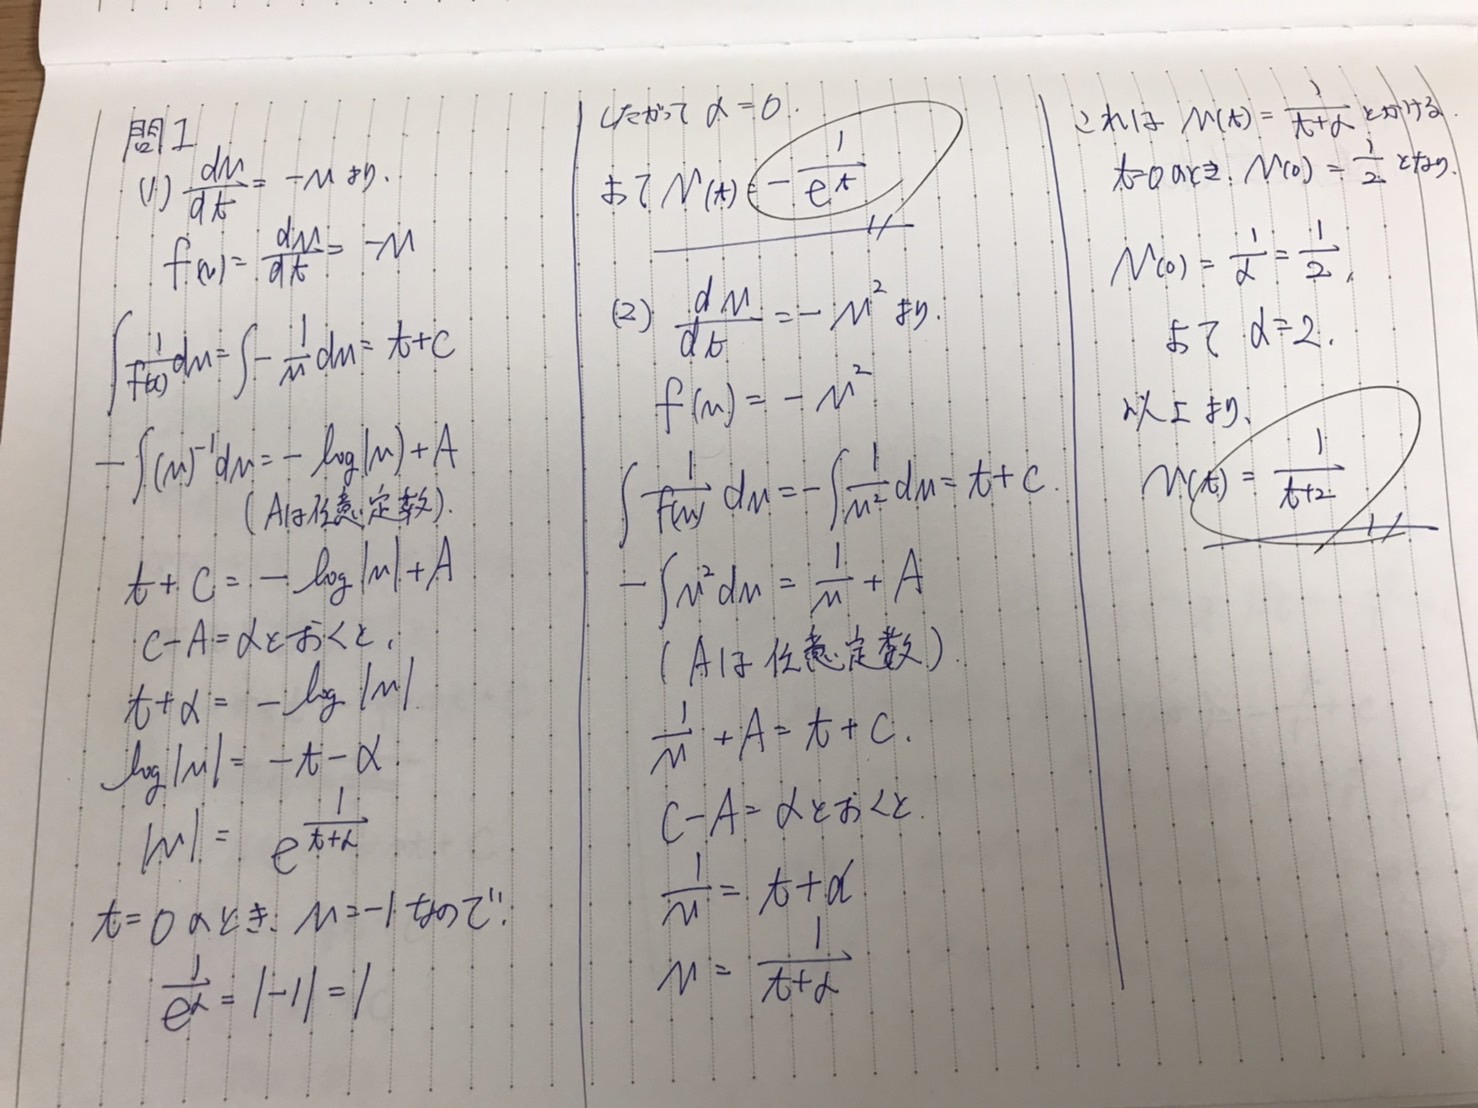 問1
(1) du/dt = -u より、
f(u) = du/dt = -u
∫ 1/f(u) du = ∫ - 1/u du = t+c
- ∫ (u)^-1 du = - log|u| + A
(Aは任意定数).
t + c = - log|u| + A
c-A = αとおくと、
t+α = - log|u|
log|u| = -t-α
|u| = e^(1/(t+α))
t=0のとき、u=-1なので、
1/e^α = |-1| = 1
したがって α=0.
よって u(t) = - 1/e^t
(2) du/dt = - u^2 より、
f(u) = - u^2
∫ 1/f(u) du = - ∫ 1/u^2 du = t+c
- ∫ u^2 du = 1/u + A
(Aは任意定数)
1/u + A = t + c.
c-A = αとおくと
1/u = t+α
u = 1/(t+α)
これは u(t) = 1/(t+α) とかける.
t=0のとき、u(0) = 1/2 となり、
u(0) = 1/α = 1/2、
よって α=2.
以上より、
u(t) = 1/(t+2)